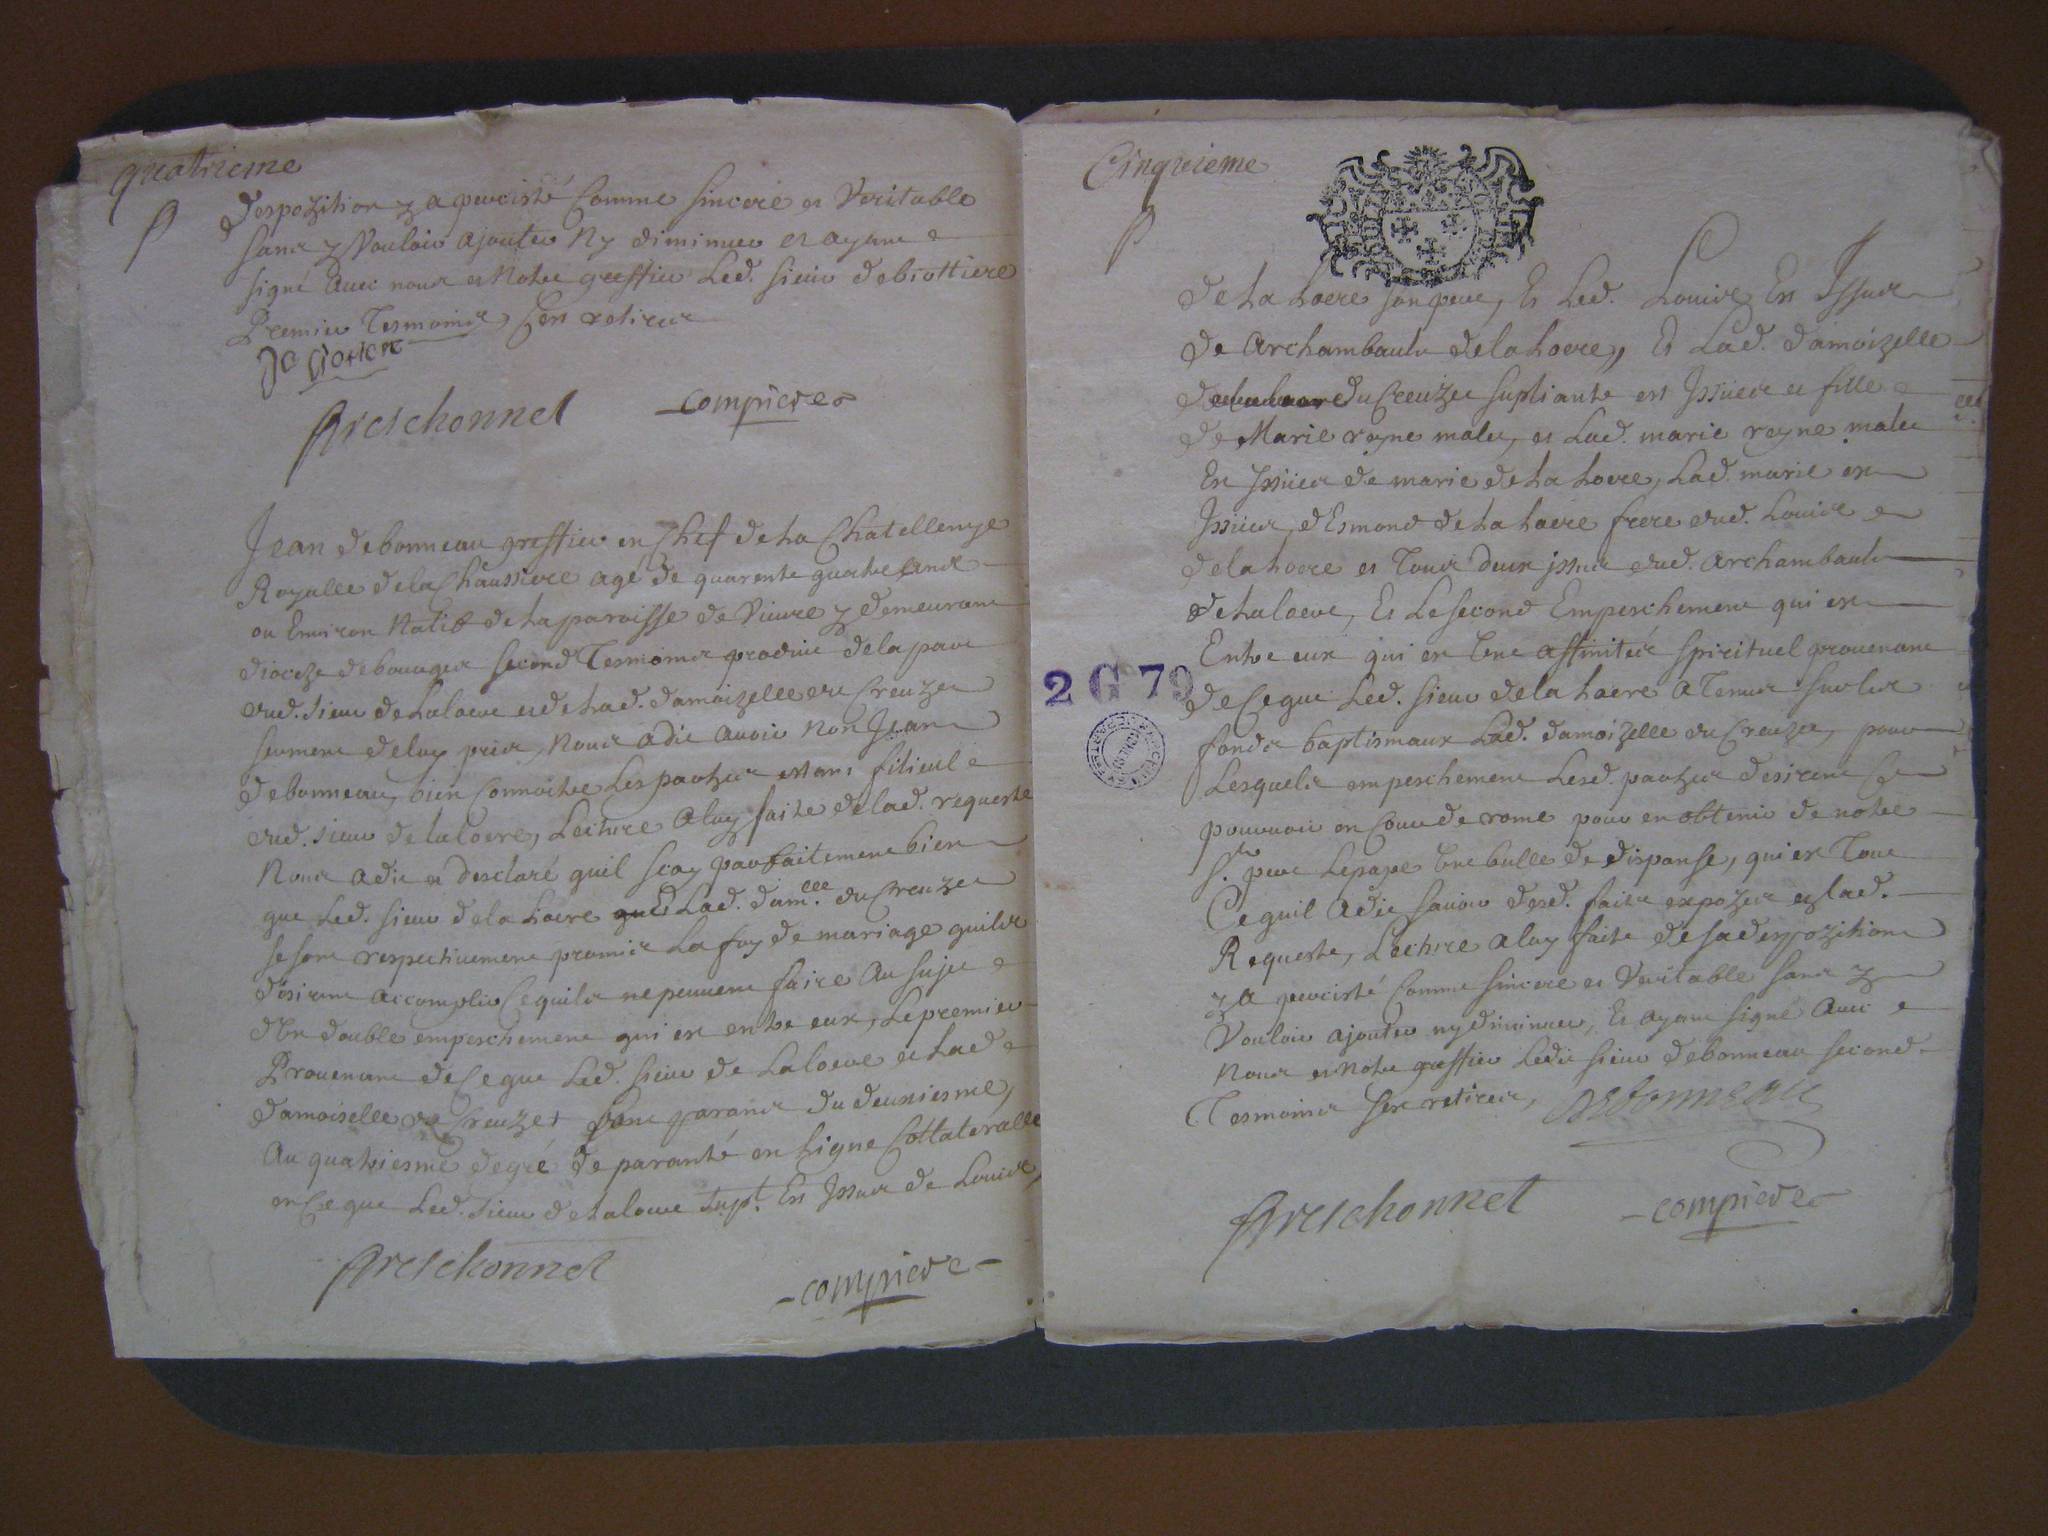 quatrieme
despozition y a percisté Comme sincere et Veritable
sans y Vouloir ajouter Ny diminuer et ayant
signé avec nous et Notre greffier Led. sieur debiottiere
Premier Tesmoins, sen retirer
compiedes
Jean debonneau greffier en Chef de La Chatellenye
Royalle de la Chaussiere agé de quarente quatre ans
ou Environ Natif de la paroisse de Vieure y demeurant
dioceze de bourges second Tesmoins produit de la part
dud. sieur de Laloere et de Lad. damoizelle du Creuzet
serment de luy pris, Nous a dit avoir Non Jean
debonneau, bien Connoitre Les partyes estant filieul
dud. sieur de laloere, Lecture a luy faite de lad. requeste
Nous a dit et desclaré quil scay parfaitement bien
que Led. sieur de la Loere et Lad. dam.lle du Creuzet
se sont respectivement promis La foy de mariage quils
desirent accomplir Ce quils ne peuvent faire Au sujet
dUn double empeschement qui est entre eux, Le premier
Provenant de Ce que Led. sieur de Laloere et Lad
damoiselle du Creuzet sont parans du deuxiesme,
Au quatriesme degré de paranté en Ligne Collateralle
en Ce que Led. sieur de Laloere supt. Est Issus de Louis,
compiede
Cinquieme
de La Loere son pere, Et Led. Louis Est Issus
de Archambault de la Loere, Et Lad. damoizelle
du Creuzet supliante est Issues et fille
de Marie reyne malet, et Lad. marie reyne malet
Est Issues de marie de La Loere, Lad. marie est
Issues, d Esmond de La Loere frere dud. Louis
de la Loere et Tous deux issus dud. Archambault
de Laloere, Et Le second Empeschement qui est
Entre eux qui est Une affinités spirituel provenant
de Ce que Led. sieur de la Loere a Tenus sur les
fonds baptismaux Lad. damoizelle du Creuzet, pour
Lesquels empeschement Lesd. partyes desirent Ce
pourvoir en Cour de rome pour en obtenir de notre
st. pere Le pape Une bulle de dispanse, qui est Tout
Ce quil a dit savoir desd. faits expozes en lad.
Requeste, Lecture a luy faite de sa despozition
y a percisté Comme sincere et Veritable sans y
Vouloir ajouter ny diminuer, Et ayant signé Avec
Nous et Notre greffier Ledit sieur debonneau second
Tesmoins sen retirer, debonneau
compiede
2 G 79